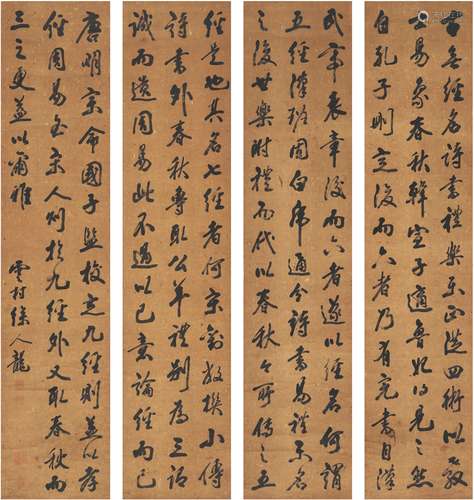 古無經詩書禮樂正造四術以教
士易象春秋韓宣子適魯始得見之然
自孔子刪定後而六者乃有完書自漢
武帝表章後而六者遂以經名何謂
五經漢班固白虎通今詩書易禮樂名
之後世樂附禮而代以春秋々所傳之五
經是也其名七經者何宋劉敞撰小傳
詩書外春秋專取公羊禮別為三
而遺周易此不過以己意論經而已
唐明宗命國子監校定九經則益以孝
經周易至宋人則於九經外又取春秋而
三之更益以爾雅 雲村徐人龍